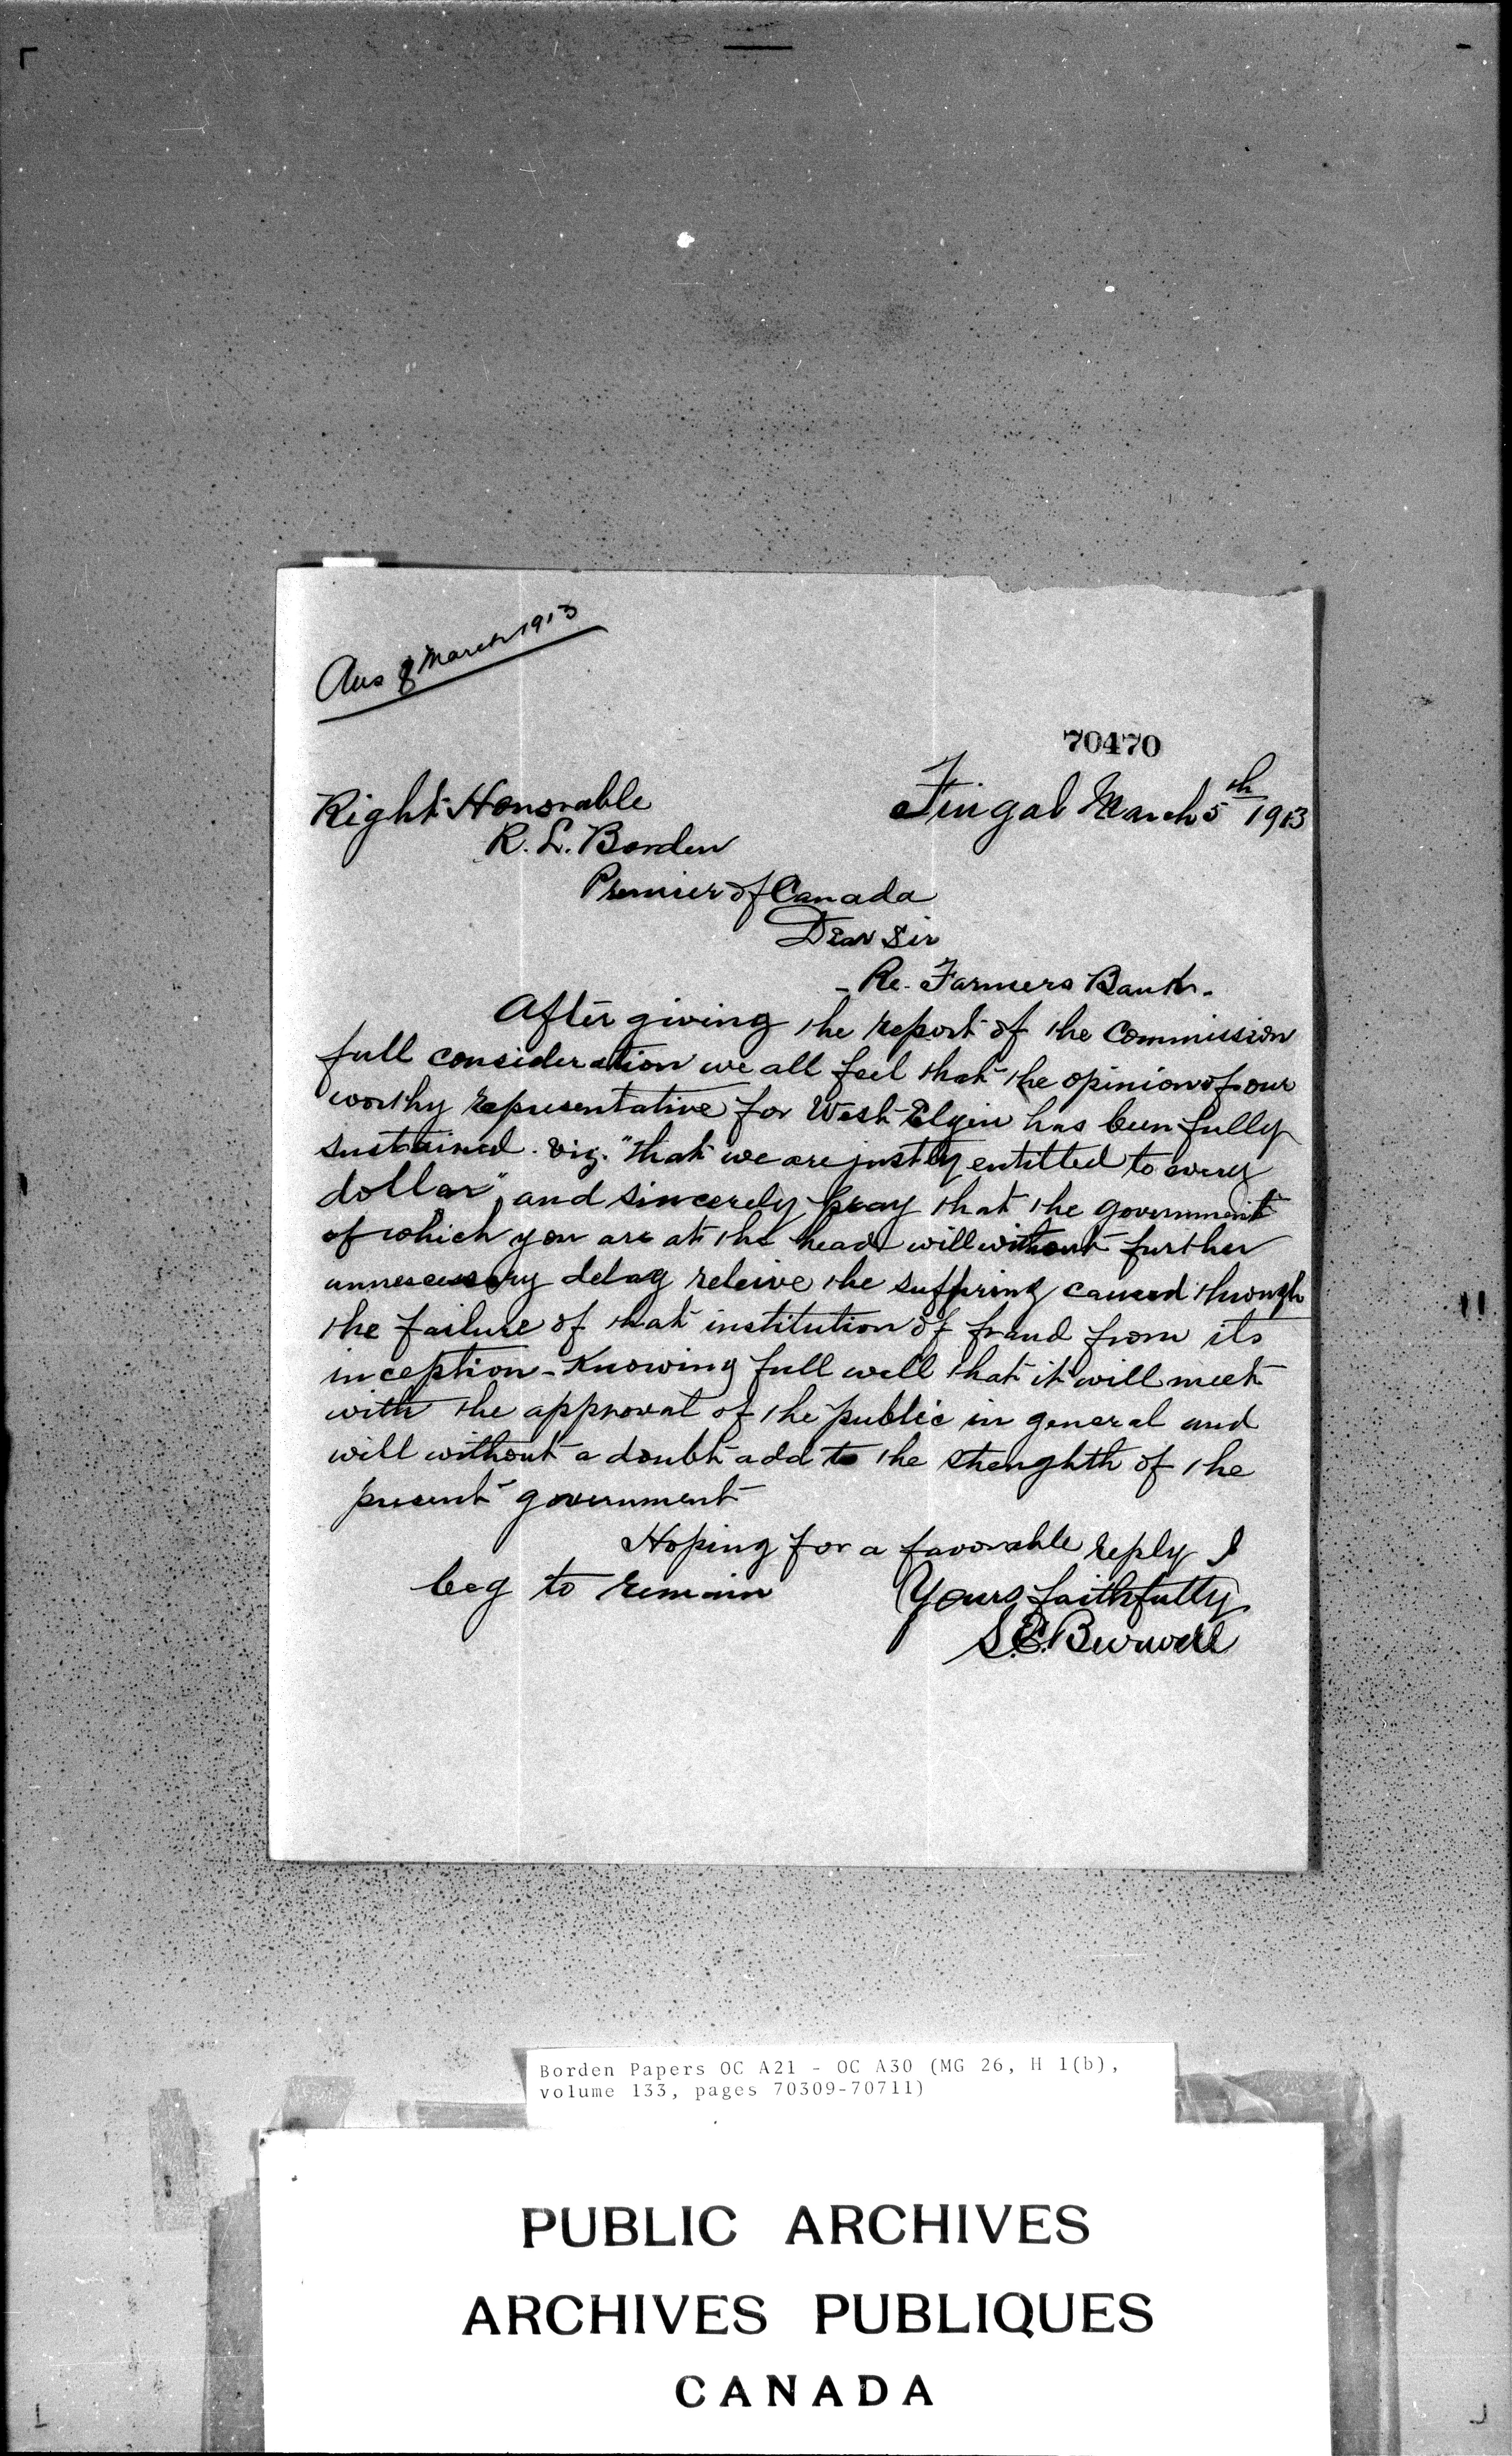 Ans 8 March 1913
70470
Fingal March 5th 1913
Right Honorable
R. L. Borden
Premier of Canada
Dear Sir
- Re. Farmers Bank -
After giving the report of the Commission
full consideration we all feel that the opinion of our
worthy representative for West Elgin has been fully
sustained. viz. "that we are justly entitled to every
dollar", and sincerely pray that the government
of which you are at the head will without further
unnescessary delay releive the suffering caused through
the failure of that institution of fraud from its
inception - Knowing full well that it will meet
with the approval of the public in general and
will without a doubt add to the strenghth of the
present government
Hoping for a favorable reply I
beg to remain Yours faithfully
S. E. Burwell
Borden Papers OC A21 - OC A30 (MG 26, H 1(b),
volume 133, pages 70309-70711)
PUBLIC ARCHIVES
ARCHIVES PUBLIQUES
CANADA